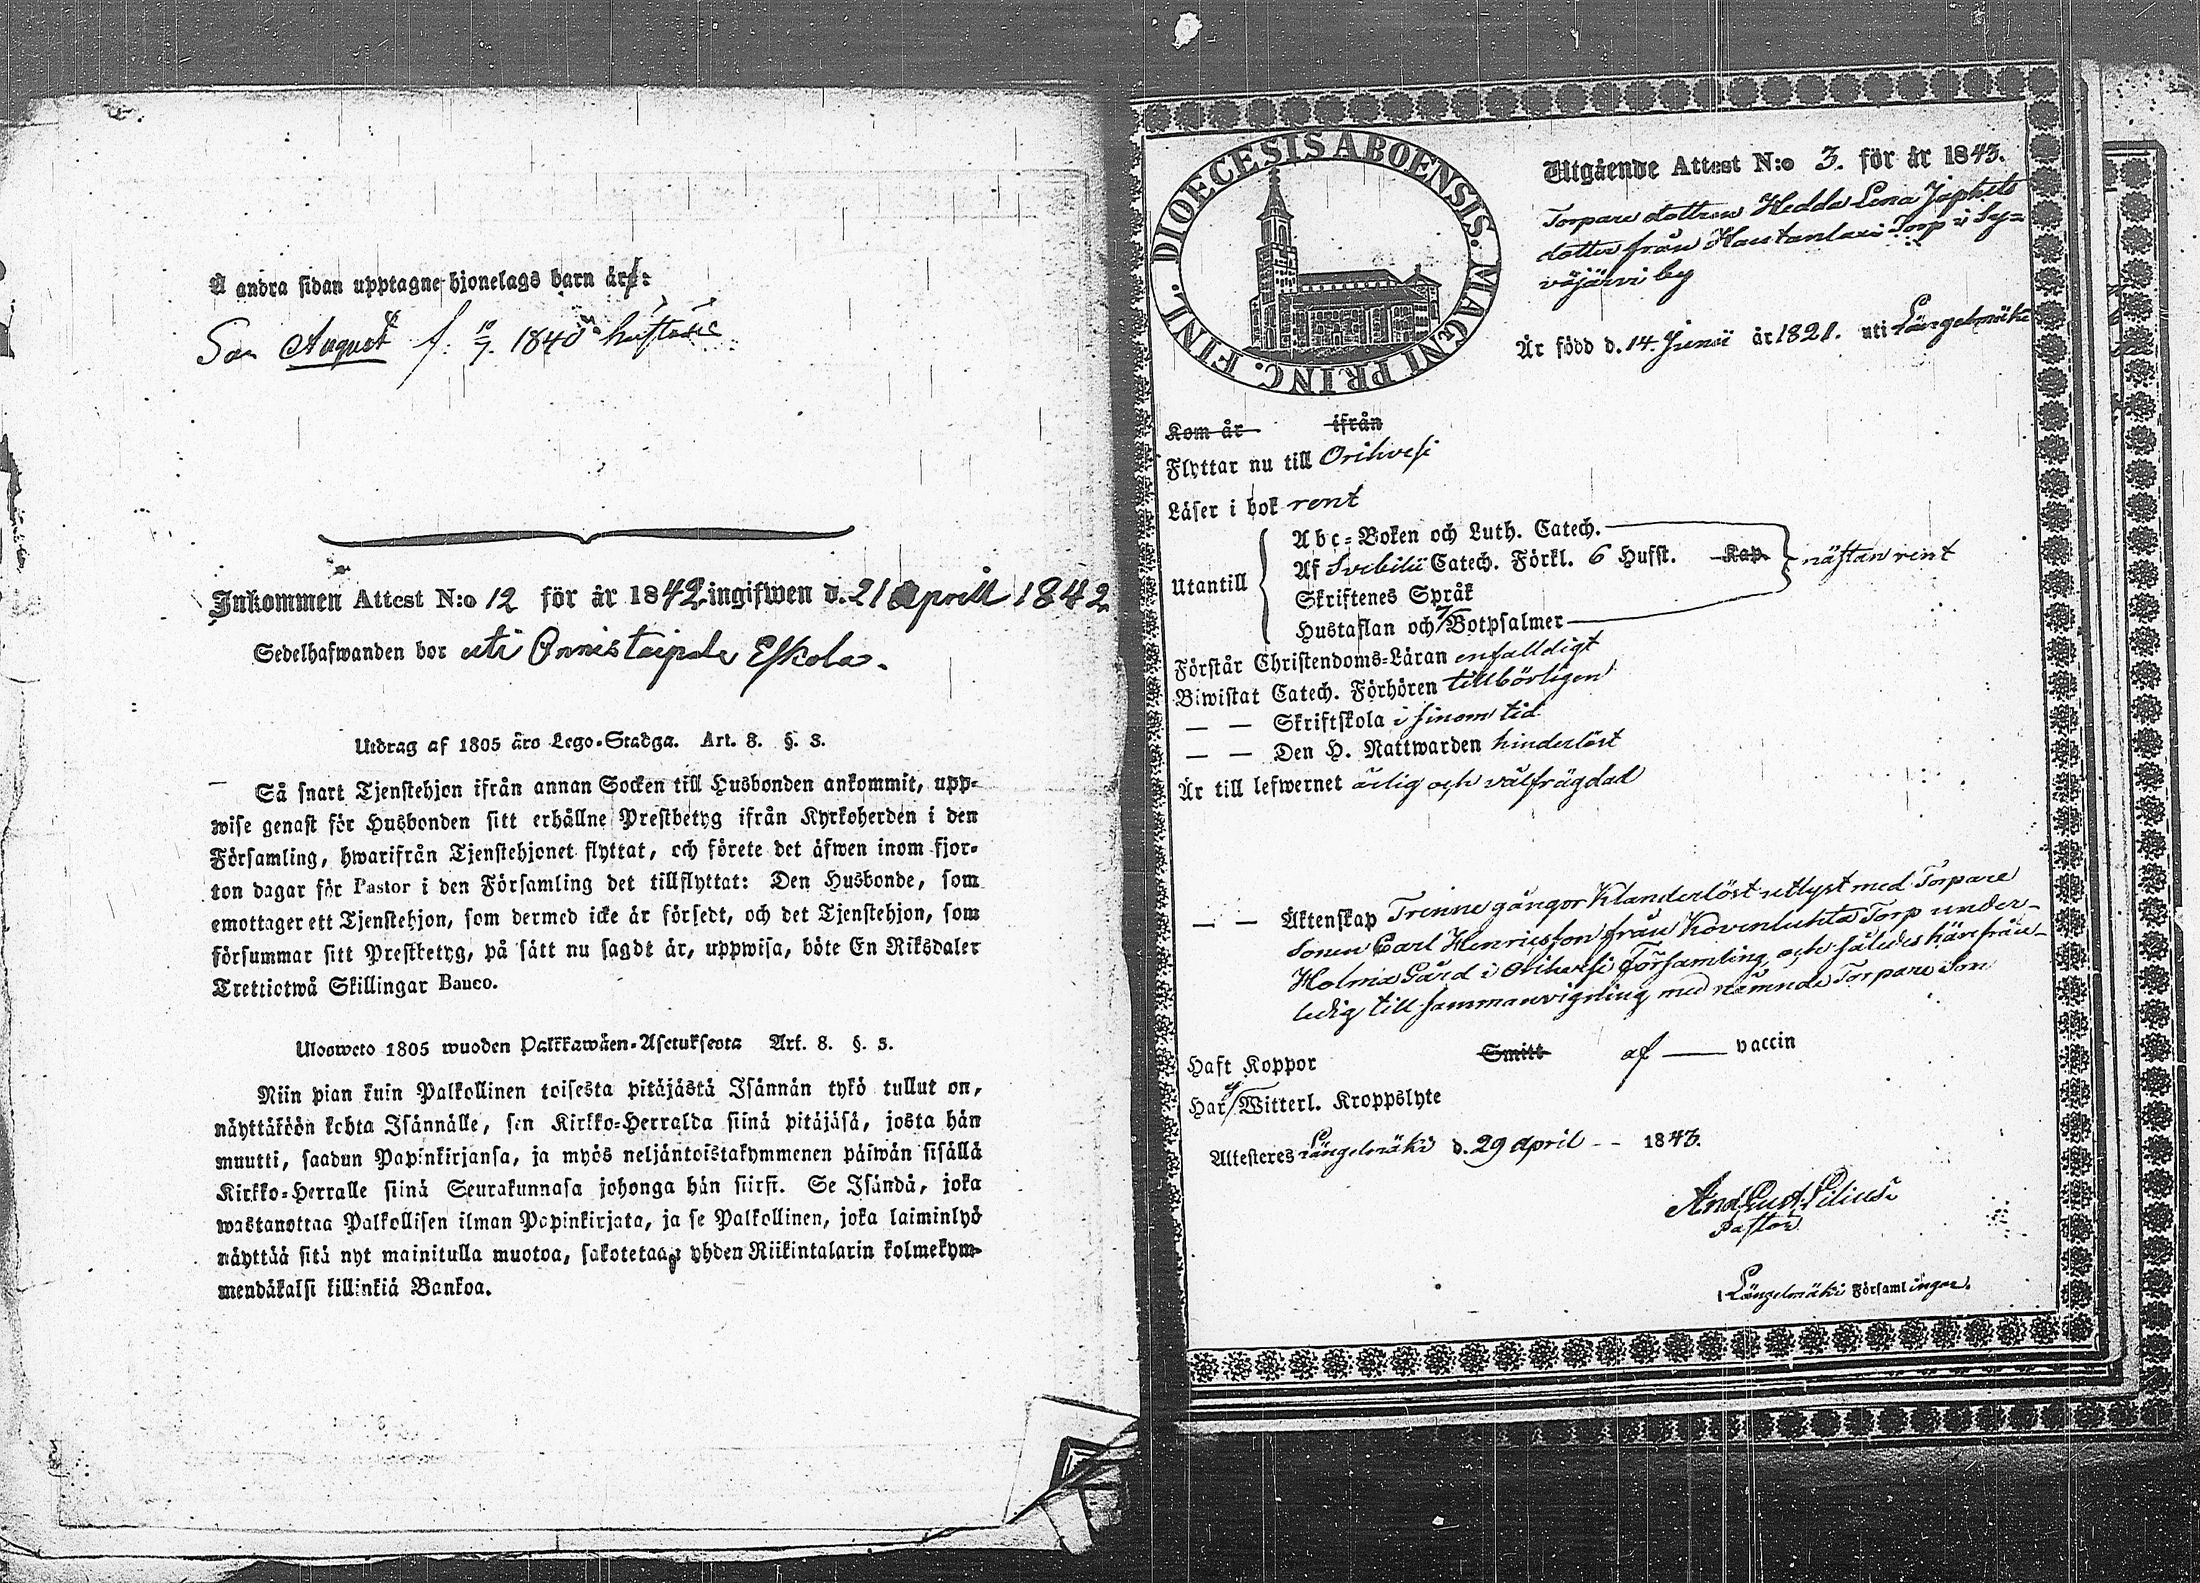 Å andra sidan upptagne hjonelags barn är:
Son August f. 10/7. 1840
Inkommen Attest N:o 12 för år 1842 ingifwen d. 21 Aprill 1842
Sedelhafwanden bor uti Onnistaipale Eskola.
Utdrag af 1805 års Lego-Stadga. Art. 8. §. 3.
Så snart Tjenstehjon ifrån annan Socken till Husbonden ankommit, upp-
wise genast för Husbonden sitt erhållne Prestbetyg ifrån Kyrkoherden i den
Församling, hwarifrån Tjenstehjonet flyttat, och förete det äfwen inom fjor-
ton dagar för Pastor i den Församling det tillflyttat: Den Husbonde, som
emottager ett Tjenstehjon, som dermed icke är försedt, och det Tjenstehjon, som
försummar sitt Prestbetyg, på sätt nu sagdt är, uppwisa, böte En Riksdaler
Trettiotwå Skillingar Banco.
Ulosweto 1805 wuoden Palkkawäen-Asetuksesta Art. 8. §. 3.
Niin pian kuin Palkollinen toisesta pitäjästä Isännän tykö tullut on,
näyttäköön kohta Isännälle, sen Kirkko-Herralda siinä pitäjäsä, josta hän
muutti, saadun Papinkirjansa, ja myös neljäntoistakymmenen päiwän sisällä
Kirkko-Herralle siinä Seurakunnasa johonga hän siirsi. Se Isändä, joka
wastanottaa Palkollisen ilman Papinkirjata, ja se Palkollinen, joka laiminlyö
näyttää sitä nyt mainitulla muotoa, sakotetaan yhden Riikintalarin kolmekym-
mendäkaksi killinkiä Bankoa.
DIOECESIS ABOENSIS. MAGNI PRINC. FINL.
Utgående Attest N:o 3. för år 1843.
Torpare dottren Hedda Lena Japhets
dotter från Hautanlaxi Torp i Sy=
väjärvi by
Är född d. 14. Junii år 1821. uti Längelmäki
Kom år ifrån
Flyttar nu till Orihvesi
Läser i bok rent
Utantill
Abc-Boken och Luth. Catech.
Af Svebilii Catech. Förkl. 6 Hufst. Kap. nästan rent
Skriftenes Språk
Hustaflan och 7 Botpsalmer
Förstår Christendoms-Läran enfalldigt
Biwistat Catech. Förhören tillbörligen
— — Skriftskola i sinom tid
— — Den H. Nattwarden hinderlöst
Är till lefwernet ärlig och välfrägdad
— — Äktenskap Trenne gångor klanderlöst utlyst med Torpare
Sonen Carl Henricsson från Kovenluhta Torp under
Holma Gård i Orihvesi Församling, och således härifrån
ledig till sammanvigning med nämnde Torpare Son
Haft Koppor Smitt af — vaccin
Har Witterl. Kroppslyte
Attesteres Längelmäki d. 29 April -- 1843.
And Gust. Lilius
Pastor
i Längelmäki Församlingar.